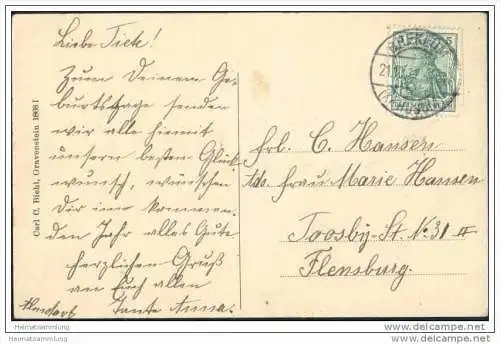 Liebe Tick!
Zum Deinem Ge-
burtstage senden
wir alle hiermit
unsern besten Glück
wunsch, wünschen
Dir im kommen-
den Jahr alles Gute
herzlichen Gruß
an Euch allen
Tante Anna.
Carl C. Biehl, Gravenstein 1808 I
Frl. C. Hansen
Adr. Frau Marie Hansen
Toosby-St. No 31 II
Flensburg.
Heimatsammlung
Heimatsammlung.com